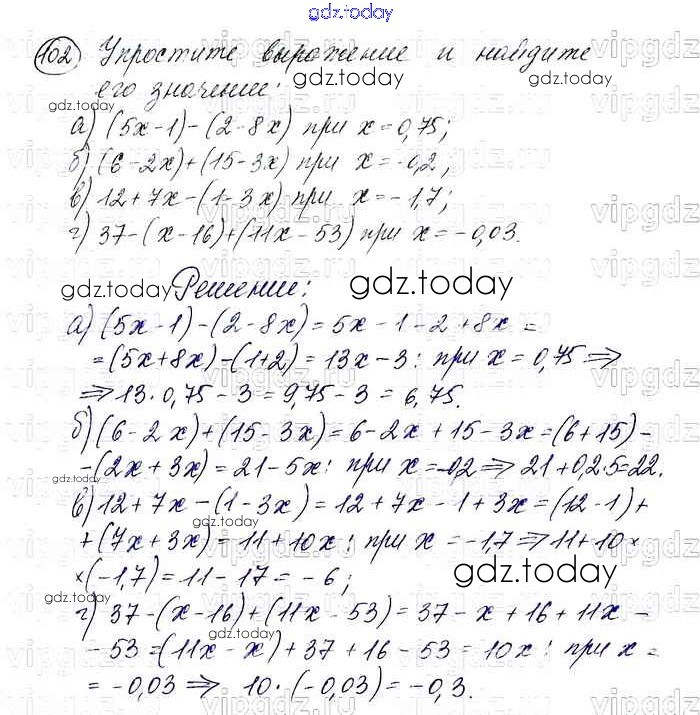 gdz.today
102 Упростите выражение и найдите
его значение:
а) (5x-1)-(2-8x) при x=0,75;
б) (6-2x)+(15-3x) при x=-0,2;
в) 12+7x-(1-3x) при x=-1,7;
г) 37-(x-16)+(11x-53) при x=-0,03.
Решение:
а) (5x-1)-(2-8x)=5x-1-2+8x=
=(5x+8x)-(1+2)=13x-3: при x=0,75⇒
⇒13·0,75-3=9,75-3=6,75.
б) (6-2x)+(15-3x)=6-2x+15-3x=(6+15)-
-(2x+3x)=21-5x: при x=-0,2⇒21+0,2·5=22.
в) 12+7x-(1-3x)=12+7x-1+3x=(12-1)+
+(7x+3x)=11+10x: при x=-1,7⇒11+10×
×(-1,7)=11-17=-6;
г) 37-(x-16)+(11x-53)=37-x+16+11x-
-53=(11x-x)+37+16-53=10x: при x=
=-0,03⇒ 10·(-0,03)=-0,3.
gdz.today
gdz.today
gdz.today
gdz.today
gdz.today
gdz.today
gdz.today
gdz.today
vipgdz.ru